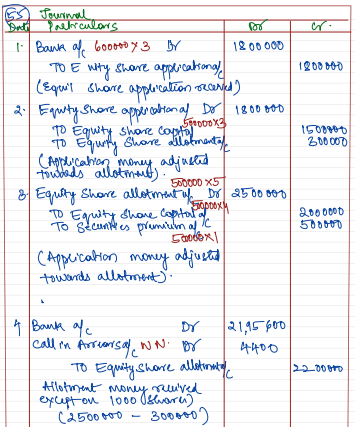 55 Journal
Date Particulars Dr Cr.
1. Bank a/c 600000 × 3 Dr 1800000
TO E uity Share application a/c 1800000
(Equi Share application received)
2. Equity Share application a/c Dr 1800000
500000×3
TO Equity Share Capital 1500000
TO Equity Share allotment a/c 300000
(Application money adjusted
towards allotment).
500000×5
3. Equity Share allotment a/c Dr 2500000
500000×4
TO Equity Share Capital a/c 2000000
TO Securities premium a/c 500000
500000×1
(Application money adjusted
towards allotment).
4 Bank a/c Dr 21,95,600
Call in Arrears a/c N.N. Dr 4400
TO Equity Share allotment a/c 2200000
Allotment money received
except on 1000 Shares)
(2500000 - 300000)